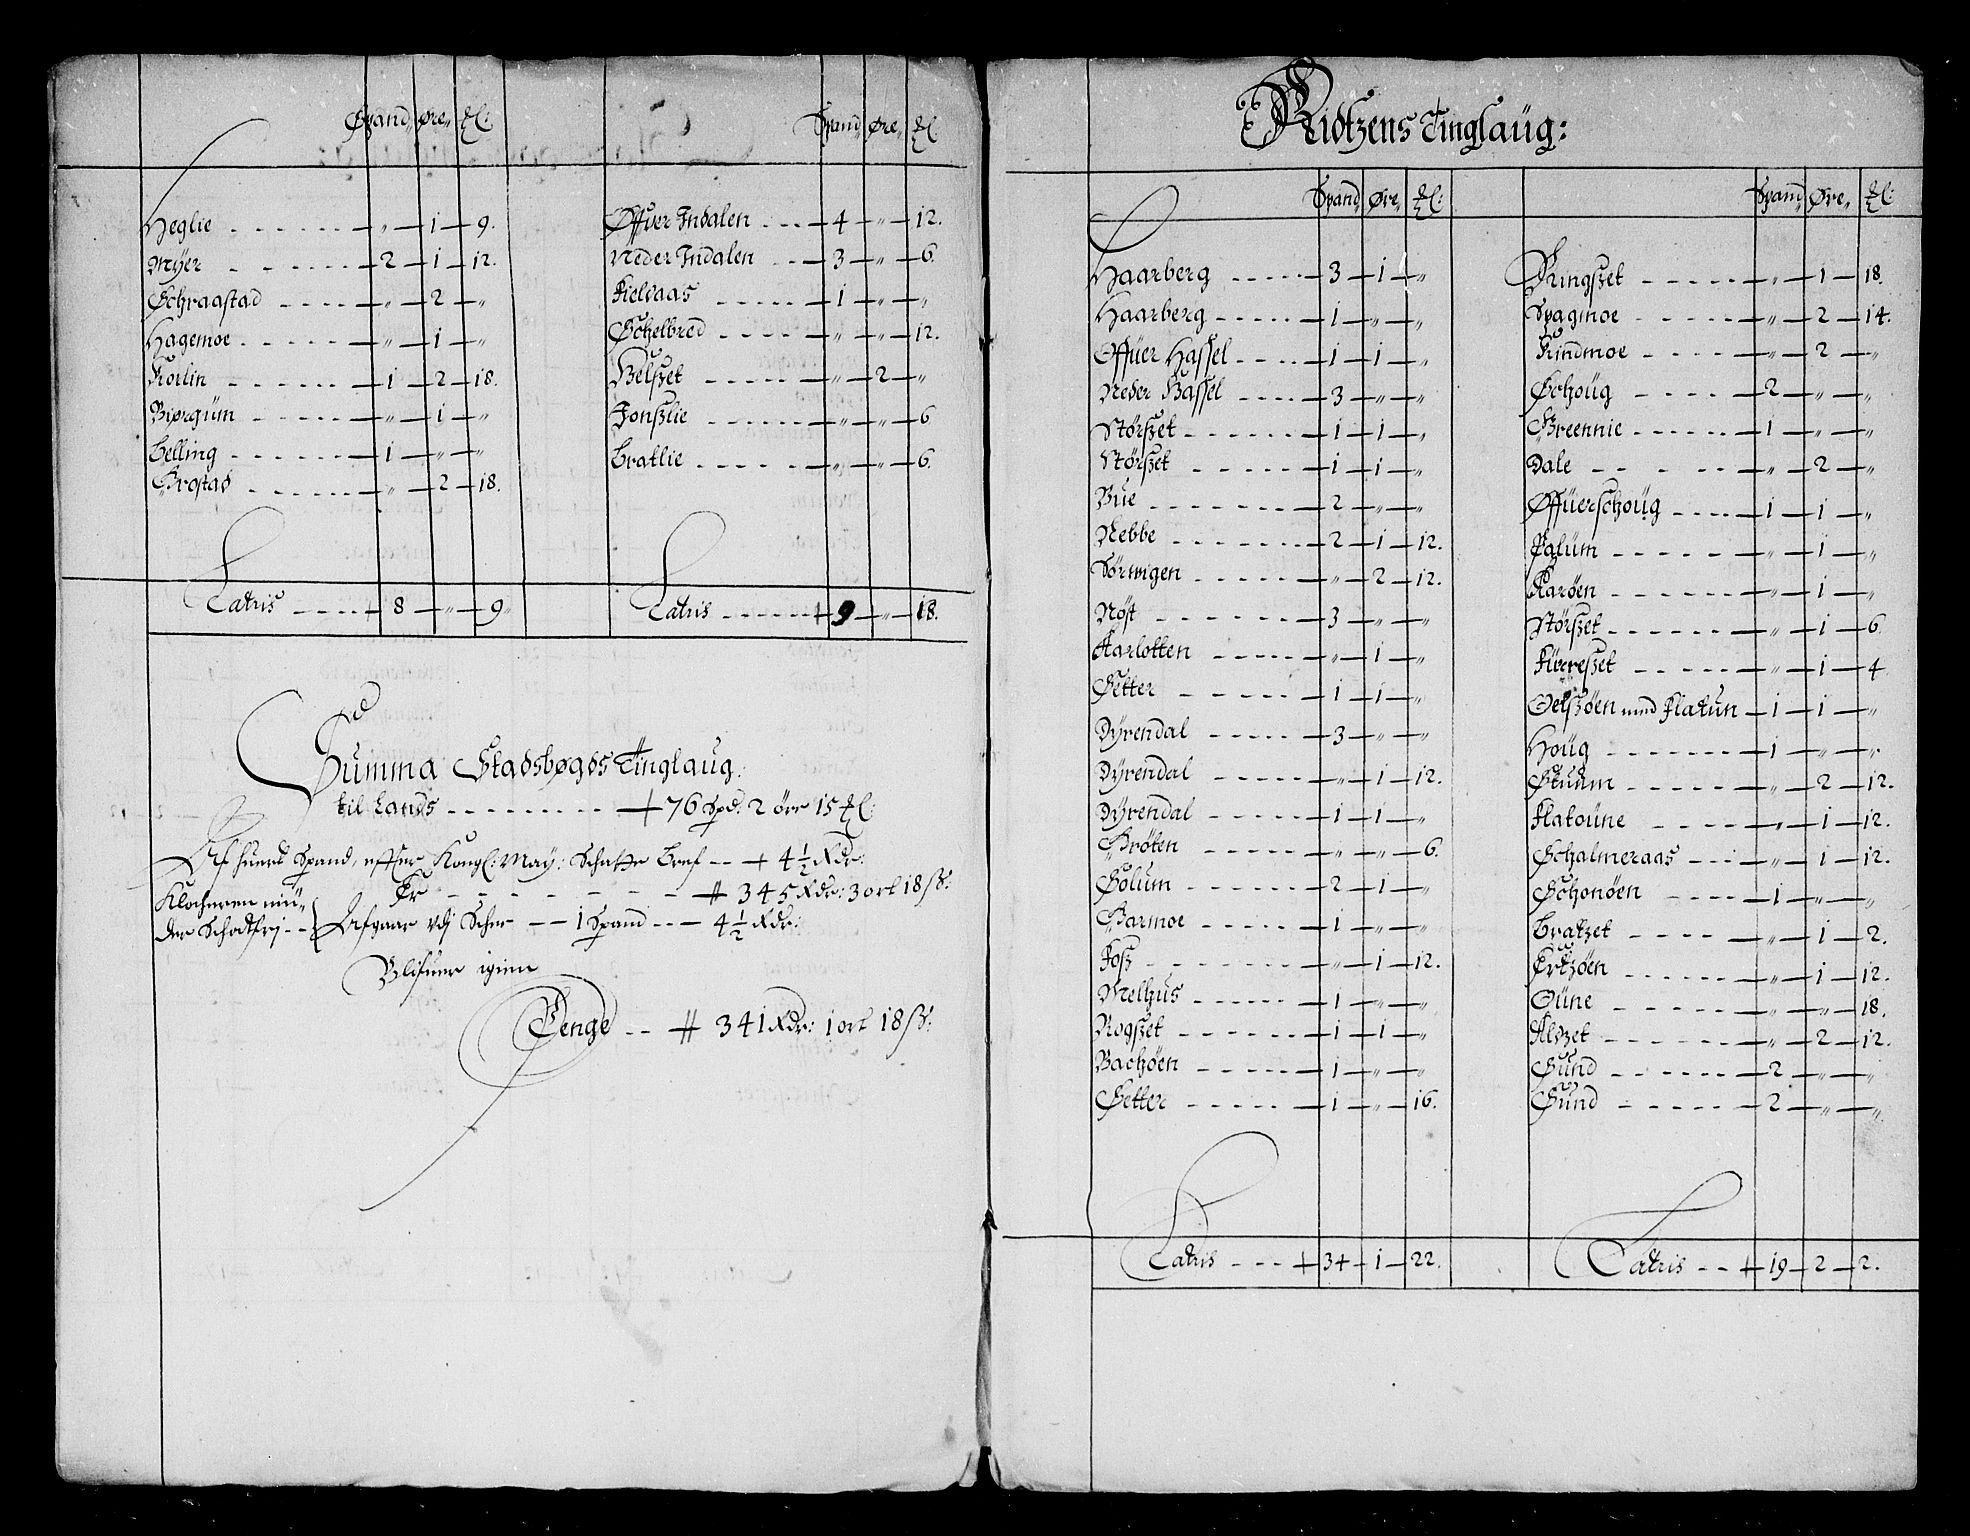 Spand, Øre, ℔:
Heglie - - - - „ - 1 - 9.
Myer - - - - 2 - 1 - 12.
Schraastad - - - - „ - 2 - „
Hagemoe - - - - „ - 1 - „
Korlin - - - - 1 - 2 - 18.
Biørgüm - - - - „ - 1 - „
Belling - - - - 1 - „ - „
Grostad - - - - „ - 2 - 18.
Latris - - - - 8 - „ - 9„
Spand, Øre, ℔
Offuer Indalen - - - 4 - „ - 12.
Neder Indalen - - - 3 - „ - 6.
Fieldaas - - - - 1 - „ - „
Schelbred - - - - „ - „ - 12.
Belszet - - - - „ - 2 - „
Jonszlie - - - - „ - „ - 6
Bratlie - - - - „ - „ - 6.
Latris - - - - 9 - „ - 18.
Summa Stadsbøgds Tinglaug:
til Lands - - - - 76 Spd: 2 öre 15 ℔:
Af huert Spand, effter Kongl: May: Schatte Bref - - 4½ Rdr:
Er - - - - 345 Rdr: 3 ort 18 sz:
Klocheren niü„
der Schatfrj - - Afgaar vdj Schr - - 1 Spand - - 4½ Rdr:
Blifuer igien
Penge - - 341 Rdr: 1 ort 18 sz:
Ridtzens Tinglaüg:
Spand, Øre, ℔:
Haarberg - - - - 3 - 1 - „
Haarberg - - - - 1 - „ - „
Offüer Hassel - - - - 1 - 1 - „
Neder Hassel - - - - 3 - „ - „
Størszet - - - - 1 - 1 - „
Størszet - - - - 1 - 1 - „
Bue - - - - 2 - „ - „
Nebbe - - - - 2 - 1 - 12.
Sörtingen - - - - „ - 2 - 12.
Nöst - - - - 3 - „ - „
Aarlotten - - - - „ - 1 - „
Setter - - - - 1 - 1 - „
Dyrendal - - - - 3 - „ - „
Dyrendal - - - - „ - 1 - 12.
Dyrendal - - - - 1 - 1 - „
Brøten - - - - „ - „ - 6.
Solum - - - - 2 - 1 - „
Garmoe - - - - 1 - „ - „
Fosz - - - - „ - 1 - 12.
Melhus - - - - 1 - „ - „
Rogszet - - - - 1 - 1 - „
Bachøen - - - - 1 - „ - „
Setter - - - - 1 - „ - 16.
Latris - - - 34 - 1 - 22.
Spand, Øre, ℔:
Ringszet - - - - „ - 1 - 18.
Spagmoe - - - - „ - 2 - 14.
Kindmoe - - - - „ - 2 - „
Schoüg - - - - 2 - „ - „
Greennie - - - - 1 - „ - „
Dale - - - - „ - 2 - „
Offüerschoüg - - - - 1 - 1 - „
Falüm - - - - „ - 1 - „
Karøen - - - - „ - 1 - „
Størszet - - - - „ - 1 - 6
Fürreszet - - - - „ - 1 - 4
Oelszöen med Flatun - 1 - 1 - „
Hoüg - - - - 1 - „ - „
Stuum - - - - „ - 2 - 12.
Flatoüne - - - - „ - 1 - 12.
Schalmeraas - - - „ - 1 - 12.
Schonöen - - - - 1 - „ - „
Bratzet - - - - „ - 1 - 2.
Erkzøen - - - - „ - 1 - 12.
Oüne - - - - „ - „ - 18.
Alszet - - - - „ - 2 - 12.
Sund - - - - 2 - „ - „
Sund - - - - 2 - „ - „
Latris - - 19 - 2 - 2.